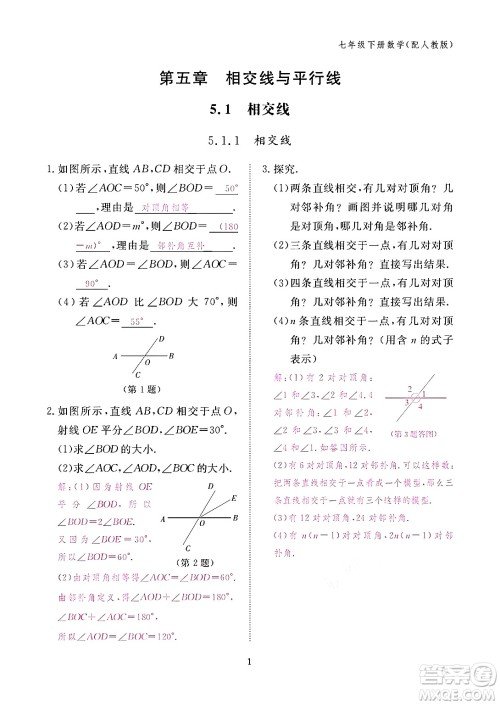 七年级下册数学(配人教版)
第五章 相交线与平行线
5.1 相交线
5.1.1 相交线
1. 如图所示,直线 AB,CD 相交于点 O.
(1)若∠AOC=50°,则∠BOD= 50°
,理由是 对顶角相等 .
(2)若∠AOD=m°,则∠BOD= (180
-m)° ,理由是 邻补角互补 .
(3)若∠AOC=∠AOD,则∠BOD=
90° .
(4)若∠AOD 比∠BOD 大 70°,则
∠AOC= 55° .
D
A O B
C
(第 1 题)
2. 如图所示,直线 AB,CD 相交于点 O,
射线 OE 平分∠BOD,∠BOE=30°.
(1)求∠BOD 的大小.
(2)求∠AOC 的大小.
解:(1)因为射线 OE
平分∠BOD,所以
∠BOD=2∠BOE.
又因为∠BOE=30°,
所以∠BOD=60°.
D
E
A O B
C
(第 2 题)
(2)由对顶角相等得∠AOC=∠BOD.
因为∠BOD=60°,所以∠AOC=60°.
3. 探究.
(1)两条直线相交,有几对对顶角?几
对邻补角?画图,并写出其中的
对顶角和邻补角.
(2)三条直线相交于一点,有几对对顶
角?几对邻补角?直接写出结果.
(3)四条直线相交于一点,有几对对顶
角?几对邻补角?直接写出结果.
(4)n 条直线相交于一点,有几对对顶
角?几对邻补角?(用含 n 的式子
表示)
解:(1)有 2 对对顶角,
∠1 和∠3,∠2 和∠4.4
对邻补角,∠1 和∠2,
∠2 和∠3,∠3 和∠4,
∠4 和∠1.
2 1
3 4
(第 3 题答图)
(2)有 6 对对顶角,12 对邻补角.(提示:
把两条直线相交看成一个模型,那么三
条直线相交就有三个这样的模型)
(3)有 12 对对顶角,24 对邻补角.
(4)有 n(n-1)对对顶角,2n(n-1)对邻
补角.
1